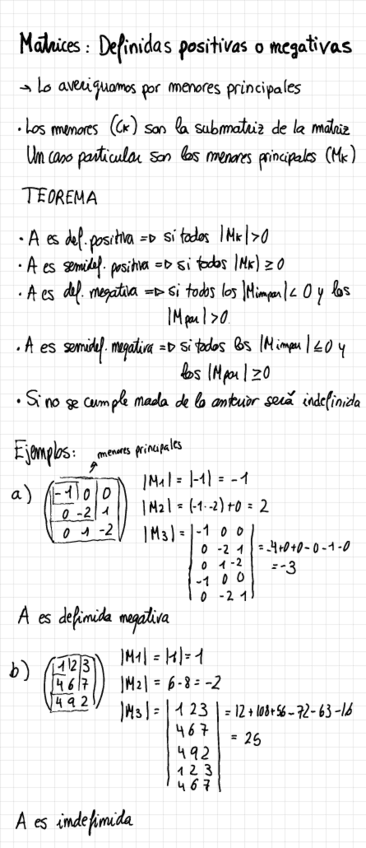 Matrices: Definidas positivas o negativas
→ Lo averiguamos por menores principales
• Los menores (Ck) son la submatriz de la matriz
Un caso particular son los menores principales (Mk)
TEOREMA
• A es def. positiva => si todos |Mk|>0
• A es semidef. positiva => si todos |Mk| ≥0
• A es def. negativa => si todos los |Mimpar|< 0 y los
|Mpar| >0
• A es semidef. negativa => si todos los |Mimpar| ≤0 y
los |Mpar| ≥0
• Si no se cumple nada de lo anterior será indefinida
Ejemplos: menores principales
a) (-1 0 0
0 -2 1
0 1 -2)
|M1| = |-1| = -1
|M2| = (-1·-2)+0 = 2
|M3| = | -1 0 0
0 -2 1
0 1 -2
-1 0 0
0 -2 1 | = -4+0+0-0-1-0
= -3
A es definida negativa
b) (1 2 3
4 6 7
4 9 2)
|M1| = |1| = 1
|M2| = 6-8 = -2
|M3| = | 1 2 3
4 6 7
4 9 2
1 2 3
4 6 7 | = 12+108+56-72-63-16
= 25
A es indefinida